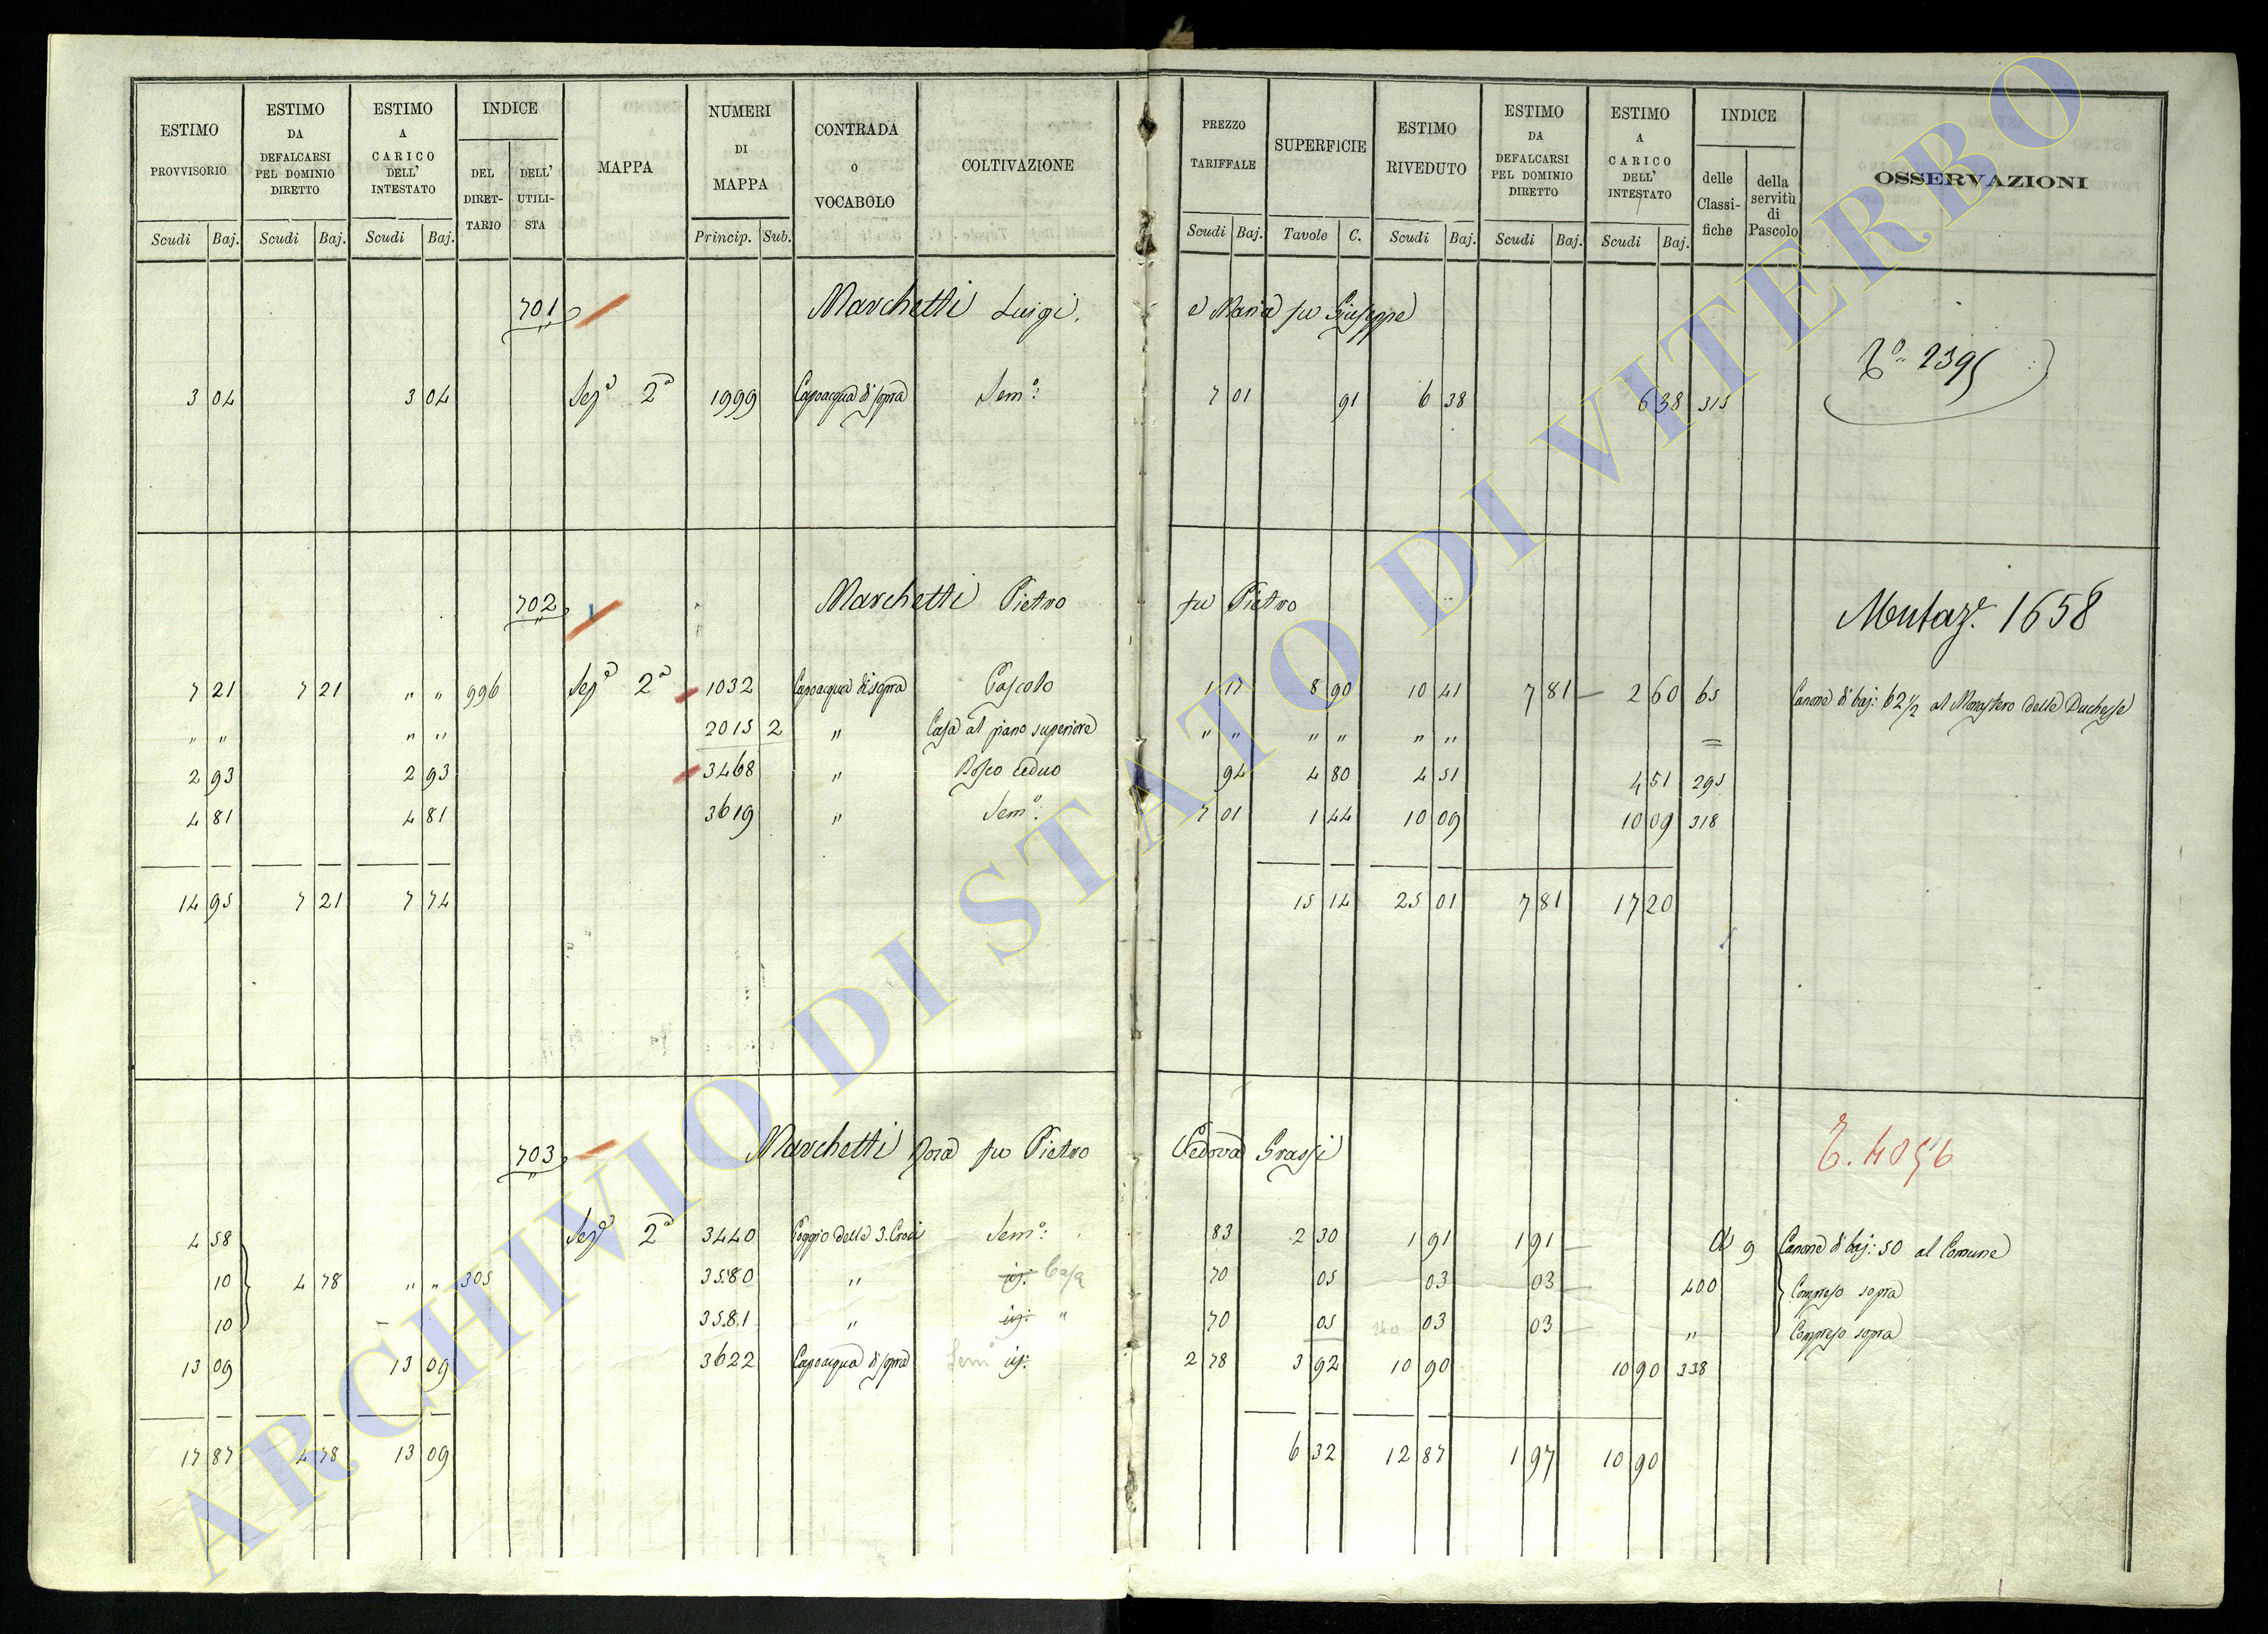 ESTIMO PROVVISORIO Scudi Baj.
ESTIMO DA DEFALCARSI PEL DOMINIO DIRETTO Scudi Baj.
ESTIMO A CARICO DELL' INTESTATO Scudi Baj.
INDICE DEL DIRET-TARIO DELL' UTILI-STA
MAPPA
NUMERI DI MAPPA Princip. Sub.
CONTRADA o VOCABOLO
COLTIVAZIONE
PREZZO TARIFFALE Scudi Baj.
SUPERFICIE Tavole C.
ESTIMO RIVEDUTO Scudi Baj.
ESTIMO DA DEFALCARSI PEL DOMINIO DIRETTO Scudi Baj.
ESTIMO A CARICO DELL' INTESTATO Scudi Baj.
INDICE delle Classi-fiche della servitù di Pascolo
OSSERVAZIONI
701 Marchetti Luigi, e Maria fu Giuseppe
2395
3 04 3 04 Sez.a 2a 1999 Capoacqua di sopra Sem.o: 7 01 91 6 38 6 38 315
702 Marchetti Pietro fu Pietro Mutaz.e 1658
7 21 7 21 " " 996 Sez.a 2a 1032 Capoacqua di sopra Pascolo 1 17 8 90 10 41 7 81 2 60 65 Canone di baj: 62 1/2 al Monastero delle Duchesse
" " " " 2015 2 " Casa al piano superiore " " " " " " =
2 93 2 93 3468 " Bosco ceduo 94 4 80 4 51 4 51 295
4 81 4 81 3619 " Sem.o: 7 01 1 44 10 09 10 09 318
14 95 7 21 7 74 15 14 25 01 7 81 17 20
703 Marchetti Rosa fu Pietro Vedova Grassi T. 4056
4 58 Sez.a 2a 3440 Poggio della S. Croce Sem.o: 83 2 30 1 91 1 91 9 Canone di baj: 50 al Comune
10 4 78 " " 305 3580 " Casa 70 05 03 03 400 Compreso sopra
10 3581 " " 70 05 03 03 " Compreso sopra
13 09 13 09 3622 Capoacqua di sopra Sem.o 2 78 3 92 10 90 10 90 338
17 87 4 78 13 09 6 32 12 87 1 97 10 90
ARCHIVIO DI STATO DI VITERBO